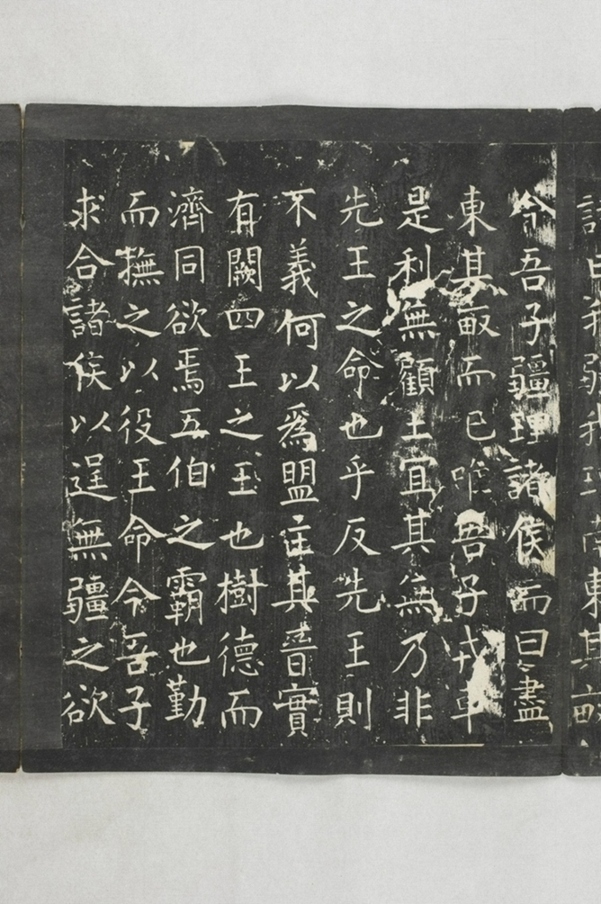 詩曰我疆我理南東其畝
今吾子疆理諸侯而曰盡
東其畝而已唯吾子戎車
是利無顧土宜其無乃非
先王之命也乎反先王則
不義何以爲盟主其晉實
有闕四王之王也樹德而
濟同欲焉五伯之霸也勤
而撫之以役王命今吾子
求合諸侯以逞無疆之欲